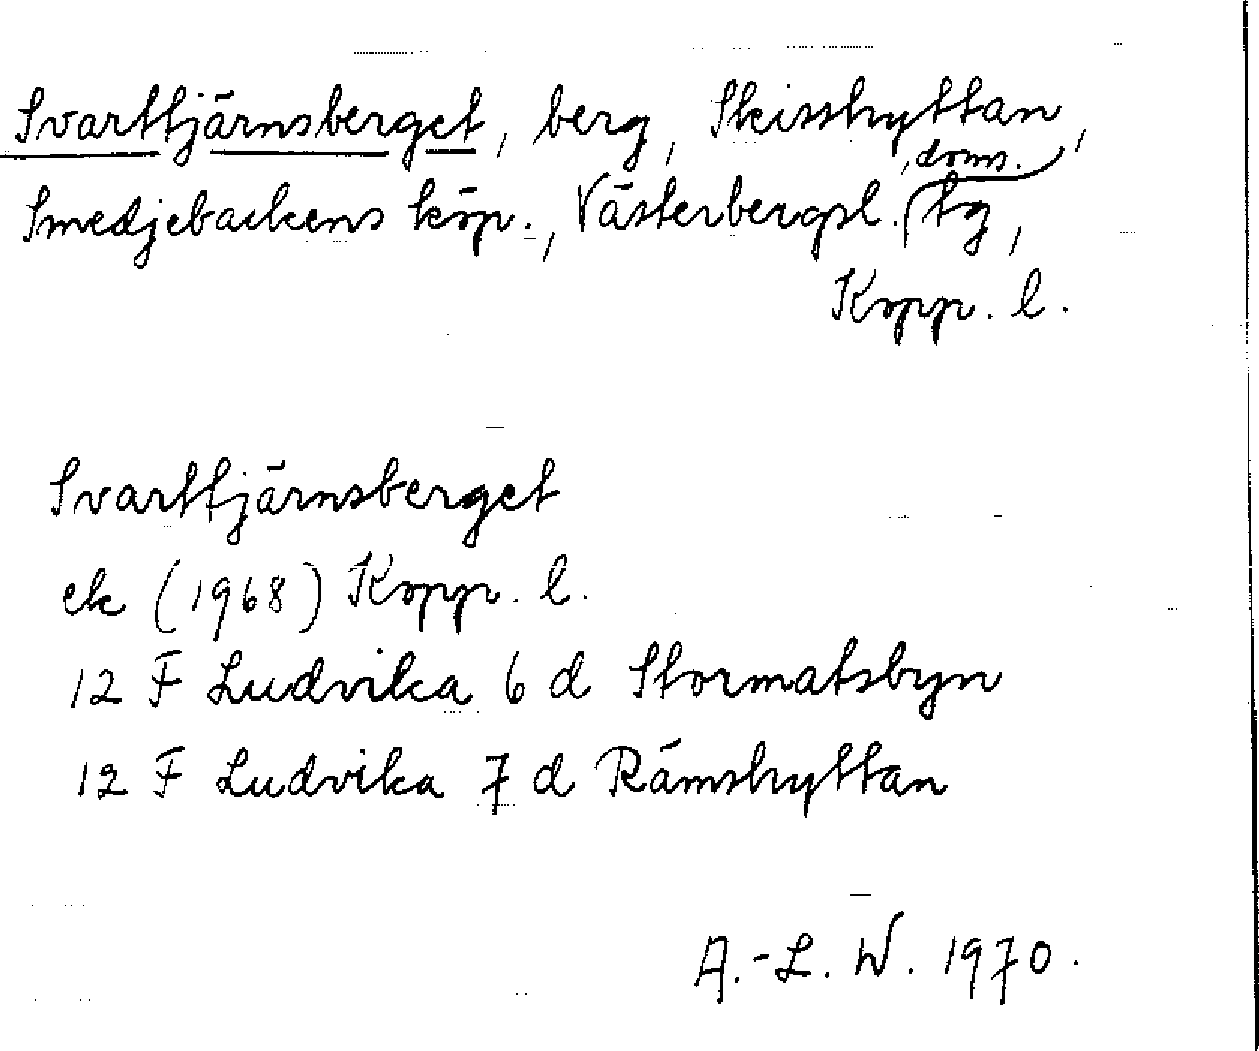 Svarttjärnsberget, berg, Skisshyttan,
Smedjebackens köp., Västerbergsl. doms. tg,
Kopp. l.
Svarttjärnsberget
ek (1968) Kopp. l.
12 F Ludvika 6 d Stormatsbyn
12 F Ludvika 7 d Rämshyttan
A.-L. W. 1970.